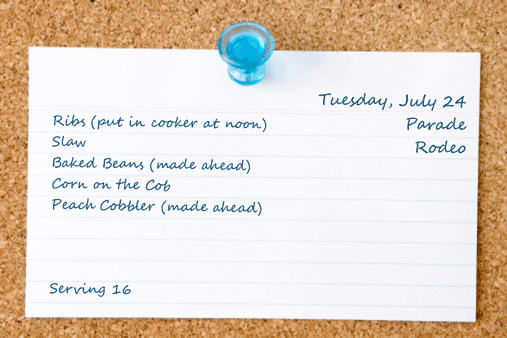 Tuesday, July 24
Parade
Rodeo
Ribs (put in cooker at noon)
Slaw
Baked Beans (made ahead)
Corn on the Cob
Peach Cobbler (made ahead)
Serving 16